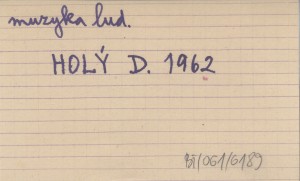 muzyka lud.
HOLÝ D. 1962
BI/061/6189